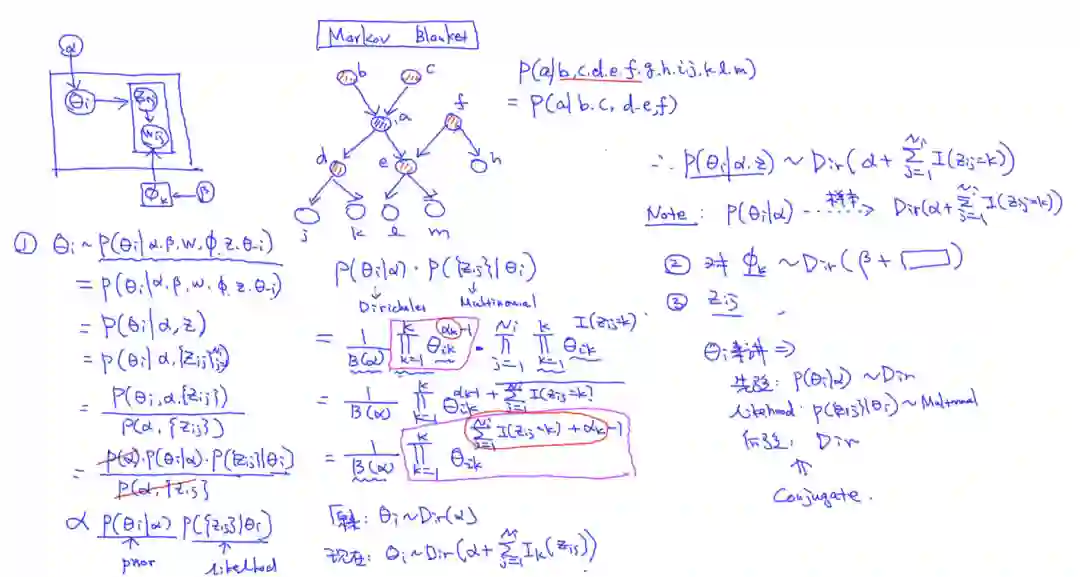 α
θi
zij
wij
ϕk
β
Markov Blanket
b
c
a
f
d
e
h
j
k
l
m
P(a|b,c,d.e.f.g.h.i.j.k.l.m)
= P(a|b.c, d.e,f)
① θi ~ P(θi|α.β.w.ϕ.z.θ-i)
= P(θi|α.β.w.ϕ.z.θ-i)
= P(θi|α,z)
= P(θi|α.{zij}_{j=1}^{Ni})
= P(θi,α.{zij}) / P(α,{zij})
= P(α).P(θi|α).P({zij}|θi) / P(α,{zij}
∝ P(θi|α) P({zij}|θi)
prior likelihood
P(θi|α) · P({zij}|θi)
Multinomial
= 1/B(α) ∏_{k=1}^{K} θik^{αk-1} · ∏_{j=1}^{Ni} ∏_{k=1}^{K} θik^{I(zij=k)}
= 1/B(α) ∏_{k=1}^{K} θik^{αk-1+∑_{j=1}^{Ni} I(zij=k)}
= 1/B(α) ∏_{k=1}^{K} θik^{∑_{j=1}^{Ni} I(zij=k)+αk-1}
: θi~Dir(α)
现在: θi~Dir(α+∑_{j=1}^{Ni} Ik(zij))
∴ P(θi|α,z) ~ Dir(α+∑_{j=1}^{Ni} I(zij=k))
Note: P(θi|α) 样本 Dir(α+∑_{j=1}^{Ni} I(zij=k))
② 对 ϕk ~Dir(β+ )
③ zij
θi 来讲 ⇒
先验: P(θi|α) ~Dir
likelihood: P(zij|θi) ~
后验: Dir
Conjugate.